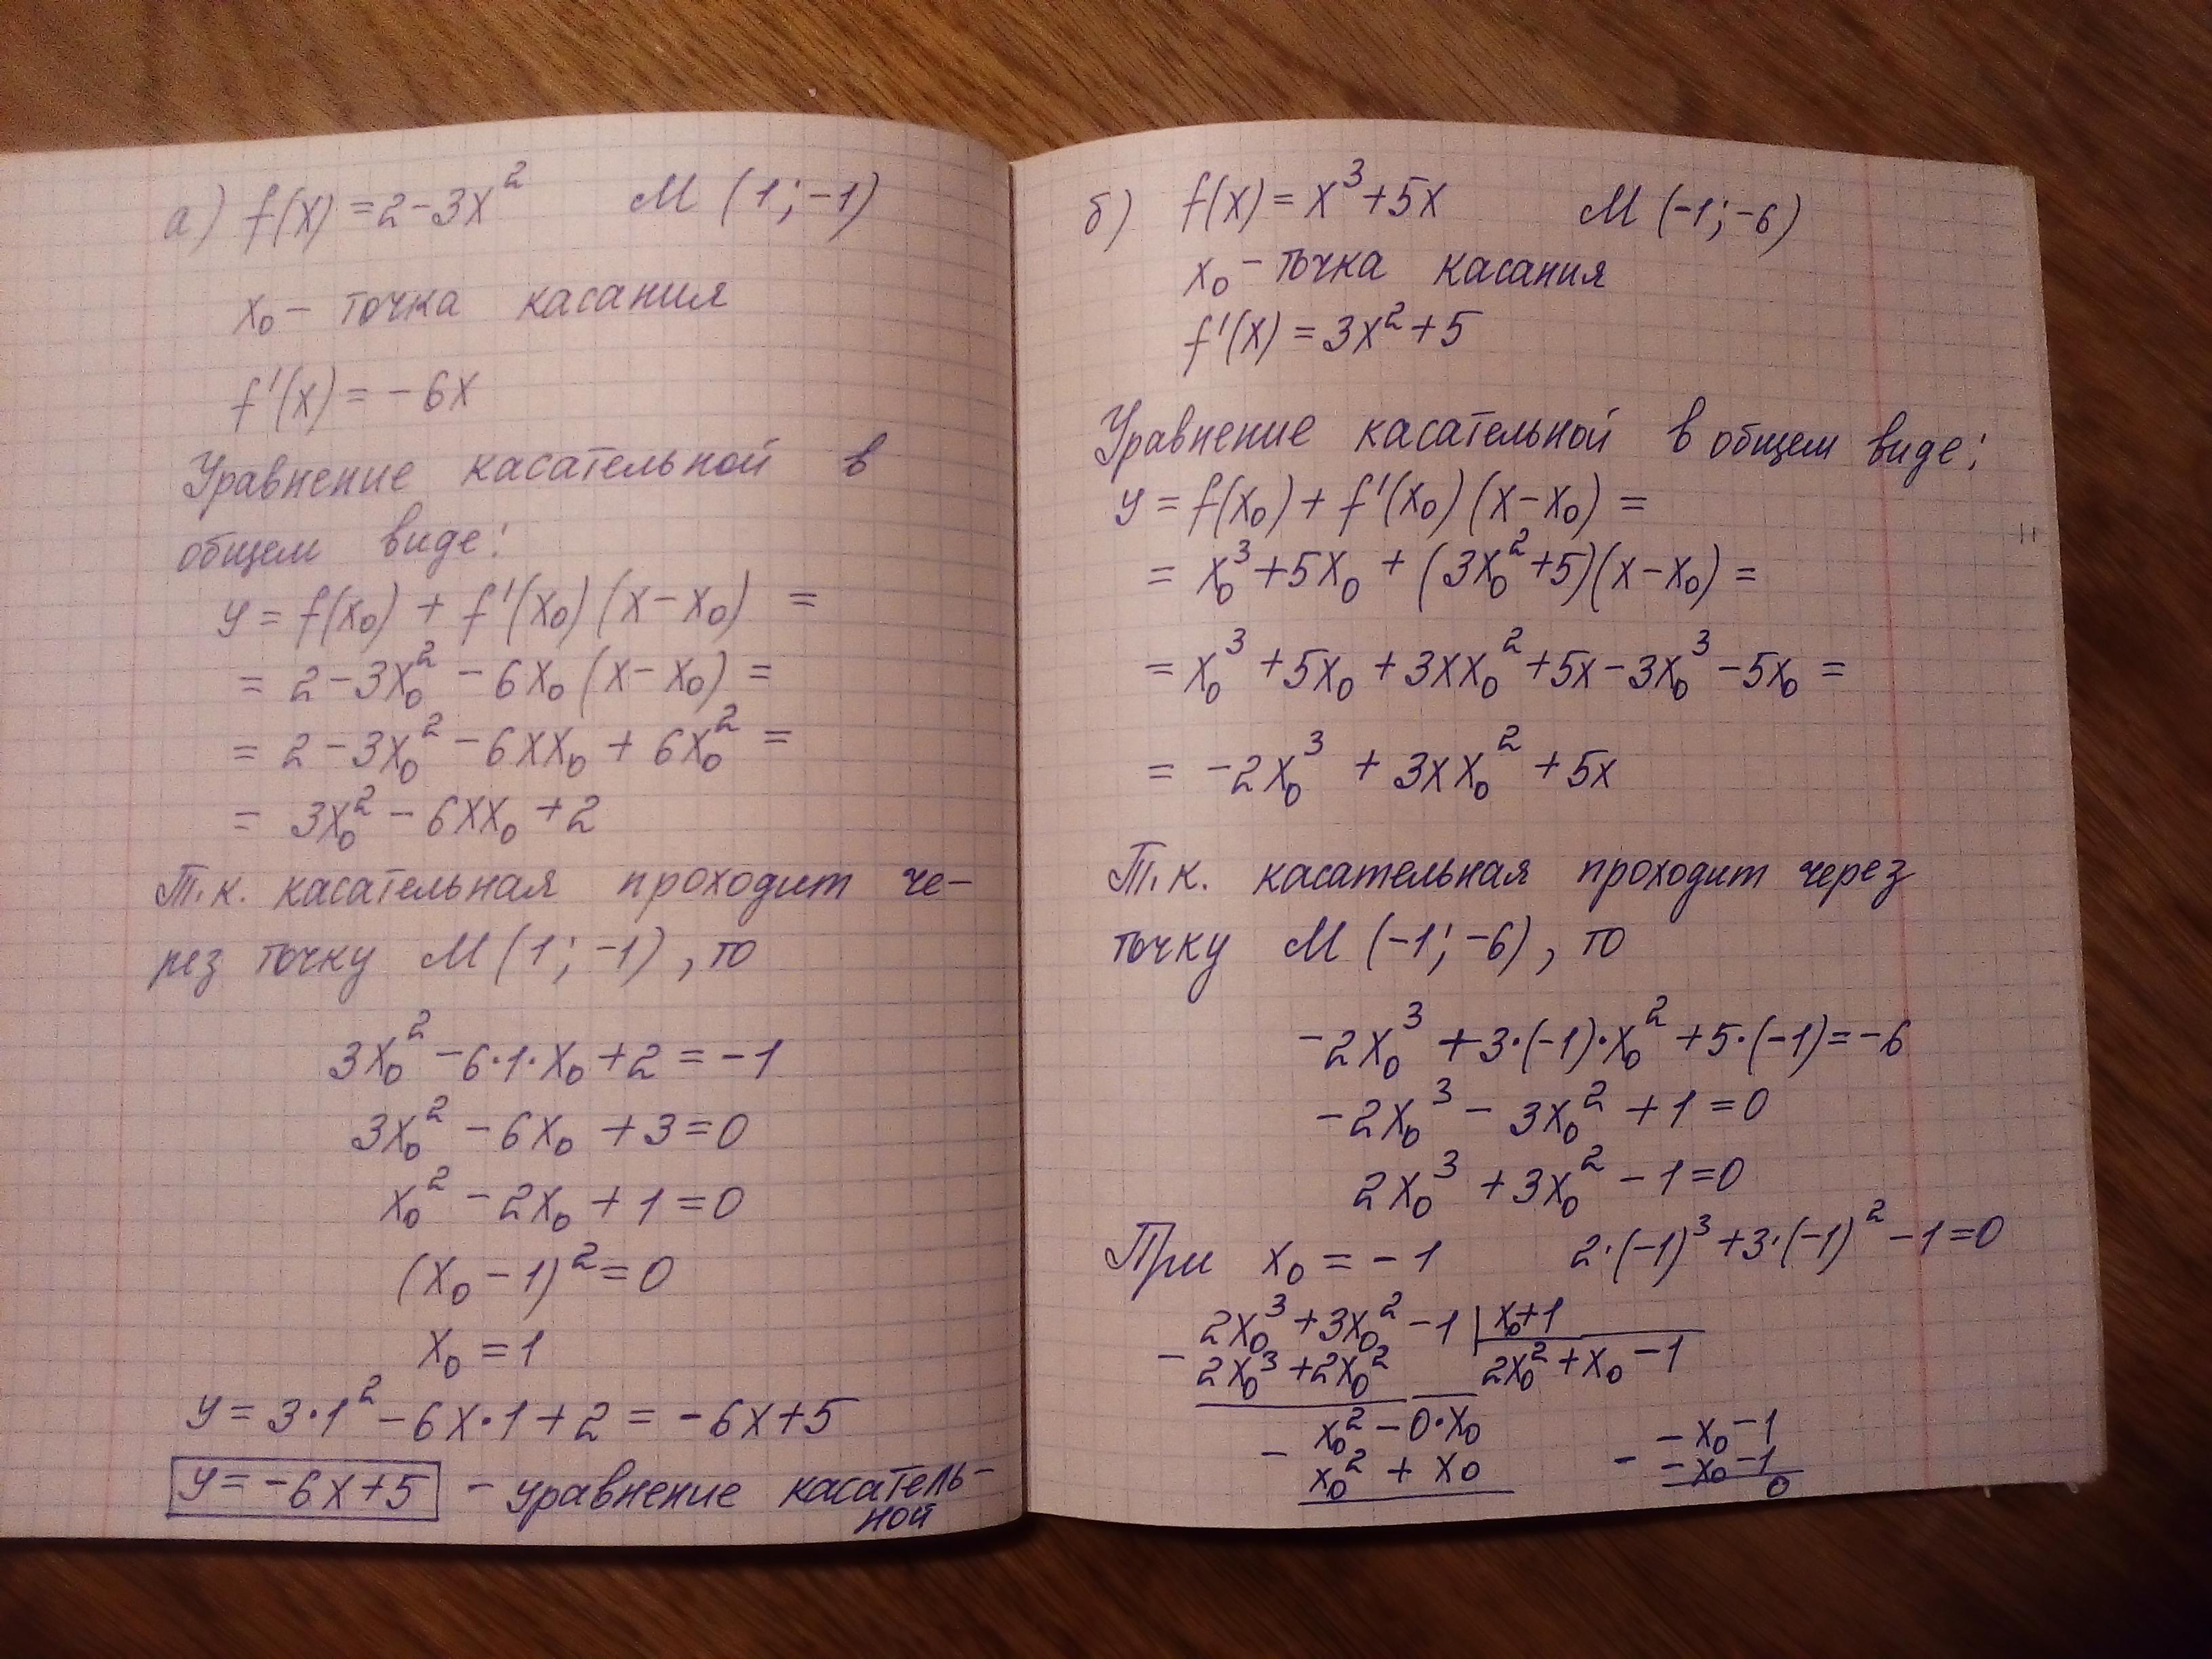 а) f(x) = 2 - 3x² M (1; -1)
x₀ - точка касания
f'(x) = - 6x
Уравнение касательной в
общем виде:
y = f(x₀) + f'(x₀)(x - x₀) =
= 2 - 3x₀² - 6x₀(x - x₀) =
= 2 - 3x₀² - 6xx₀ + 6x₀² =
= 3x₀² - 6xx₀ + 2
Т.к. касательная проходит че-
рез точку M (1; -1), то
3x₀² - 6·1·x₀ + 2 = -1
3x₀² - 6x₀ + 3 = 0
x₀² - 2x₀ + 1 = 0
(x₀ - 1)² = 0
x₀ = 1
y = 3·1² - 6x·1 + 2 = -6x + 5
y = -6x + 5 - уравнение касатель-
ной
б) f(x) = x³ + 5x M (-1; -6)
x₀ - точка касания
f'(x) = 3x² + 5
Уравнение касательной в общем виде:
y = f(x₀) + f'(x₀)(x - x₀) =
= x₀³ + 5x₀ + (3x₀² + 5)(x - x₀) =
= x₀³ + 5x₀ + 3xx₀² + 5x - 3x₀³ - 5x₀ =
= -2x₀³ + 3xx₀² + 5x
Т.к. касательная проходит через
точку M (-1; -6), то
-2x₀³ + 3·(-1)·x₀² + 5·(-1) = -6
-2x₀³ - 3x₀² + 1 = 0
2x₀³ + 3x₀² - 1 = 0
При x₀ = -1 2·(-1)³ + 3·(-1)² - 1 = 0
2x₀³ + 3x₀² - 1 | x₀ + 1
- 2x₀³ + 2x₀² 2x₀² + x₀ - 1
x₀² - 0·x₀ - x₀ - 1
- x₀² + x₀ - - x₀ - 1
0